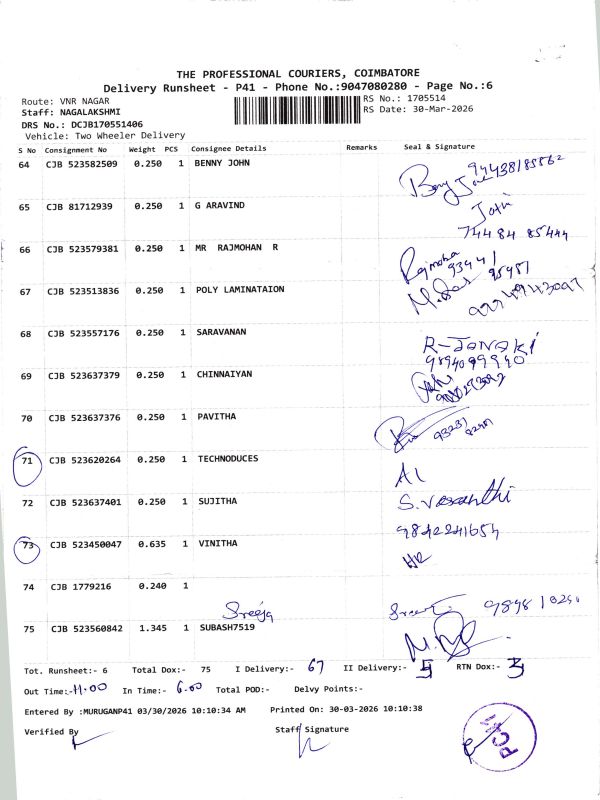 THE PROFESSIONAL COURIERS, COIMBATORE
Delivery Runsheet - P41 - Phone No.:9047080280 - Page No.:6
Route: VNR NAGAR
RS No.: 1705514
Staff: NAGALAKSHMI
RS Date: 30-Mar-2026
DRS No.: DCJB170551406
Vehicle: Two Wheeler Delivery
S No Consignment No Weight PCS Consignee Details Remarks Seal & Signature
64 CJB 523582509 0.250 1 BENNY JOHN
65 CJB 81712939 0.250 1 G ARAVIND
74484 85444
66 CJB 523579381 0.250 1 MR RAJMOHAN R
Rajmoha
93441
95451
67 CJB 523513836 0.250 1 POLY LAMINATAION
68 CJB 523557176 0.250 1 SARAVANAN
R-JANAKI
9894099940
69 CJB 523637379 0.250 1 CHINNAIYAN
70 CJB 523637376 0.250 1 PAVITHA
71 CJB 523620264 0.250 1 TECHNODUCES
72 CJB 523637401 0.250 1 SUJITHA
S.Vasanthi
9842241654
73 CJB 523450047 0.635 1 VINITHA
74 CJB 1779216 0.240 1
Sreeja
75 CJB 523560842 1.345 1 SUBASH7519
Tot. Runsheet:- 6 Total Dox:- 75 I Delivery:- 67 II Delivery:- 5 RTN Dox:- 3
Out Time:-11.00 In Time:- 6.00 Total POD:- Delvy Points:-
Entered By :MURUGANP41 03/30/2026 10:10:34 AM Printed On: 30-03-2026 10:10:38
Verified By Staff Signature